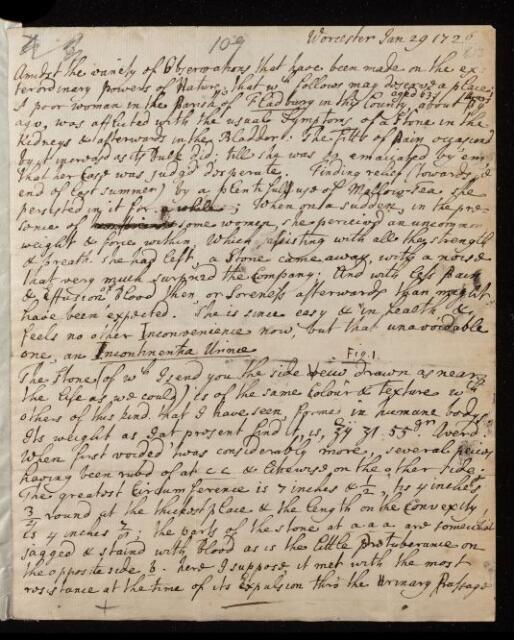 109
Worcester Jan 29 172
Amidst the variety of Observations that have been made on the ex-
terordinary powers of Nature, that wch follows may deserve a place;
aged 63
A poor woman in the Parish of Fladbury in this County, about 4 years
ago, was afflicted with the usual Symptoms of a Stone in the
Kidneys & afterwards in the Bladder: The Fitts of Pain occasiond
by it increasd as its Bulk did, till she was so emaciated by em
that her case was judgd desperate. Finding relief (towards ye
end of last summer) by a plentifull use of Mallow-Tea she
persisted in it for a while; When on a sudden, in the pre-
sence of some women, she perceivd an uncommon
weight & force within, Which assisting with all the strength
& breath she had left, a Stone came away, with a noise
that very much surprizd the Company; And with less Pain
& effusion of Blood then, or Soreness afterwards than might
have been expected. She is since easy & in health, &
feels no other Inconvenience now, but that unavoidable
one, an Incontinentia Urinæ
Fig. 1.
The Stone (of wch I send you the side view drawn as near
the life as we could) is of the same Colour & texture wth
others of this kind that I have seen, formd in humane bodys
Its weight as I at present find it, is, 31. 55 gr.
When first voided was considerably more, several pieces
having been rub'd of at c c & likewise on the other side.
The greatest Circumference is 7 inches & 1/2, its 4 inches
3/4 round at the thickest place & the length on the Convexity
is 4 inches. The parts of the stone at a.a.a. are somewhat
Jagged & staind with blood as is the little protuberance on
the opposite side b. here I suppose it met with the most
resistance at the time of its Expulsion thro the Urinary Passage